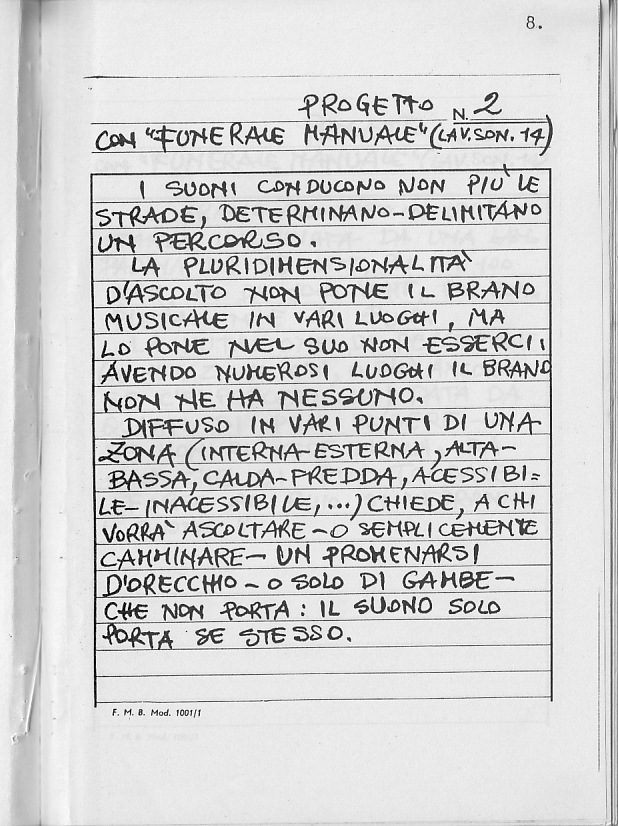 8.
PROGETTO N. 2
CON "FUNERALE MANUALE" (LAV. SON. 14)
I SUONI CONDUCONO NON PIÙ LE
STRADE, DETERMINANO-DELIMITANO
UN PERCORSO.
LA PLURIDIMENSIONALITÀ
D'ASCOLTO NON PONE IL BRANO
MUSICALE IN VARI LUOGHI, MA
LO PONE NEL SUO NON ESSERCI:
AVENDO NUMEROSI LUOGHI IL BRANO
NON NE HA NESSUNO.
DIFFUSO IN VARI PUNTI DI UNA
ZONA (INTERNA-ESTERNA, ALTA-
BASSA, CALDA-FREDDA, ACESSIBI=
LE-INACESSIBILE, ...) CHIEDE, A CHI
VORRÀ ASCOLTARE - O SEMPLICEMENTE
CAMMINARE - UN PROMENARSI
D'ORECCHIO - O SOLO DI GAMBE -
CHE NON PORTA: IL SUONO SOLO
PORTA SE STESSO.
F. M. B. Mod. 1001/1